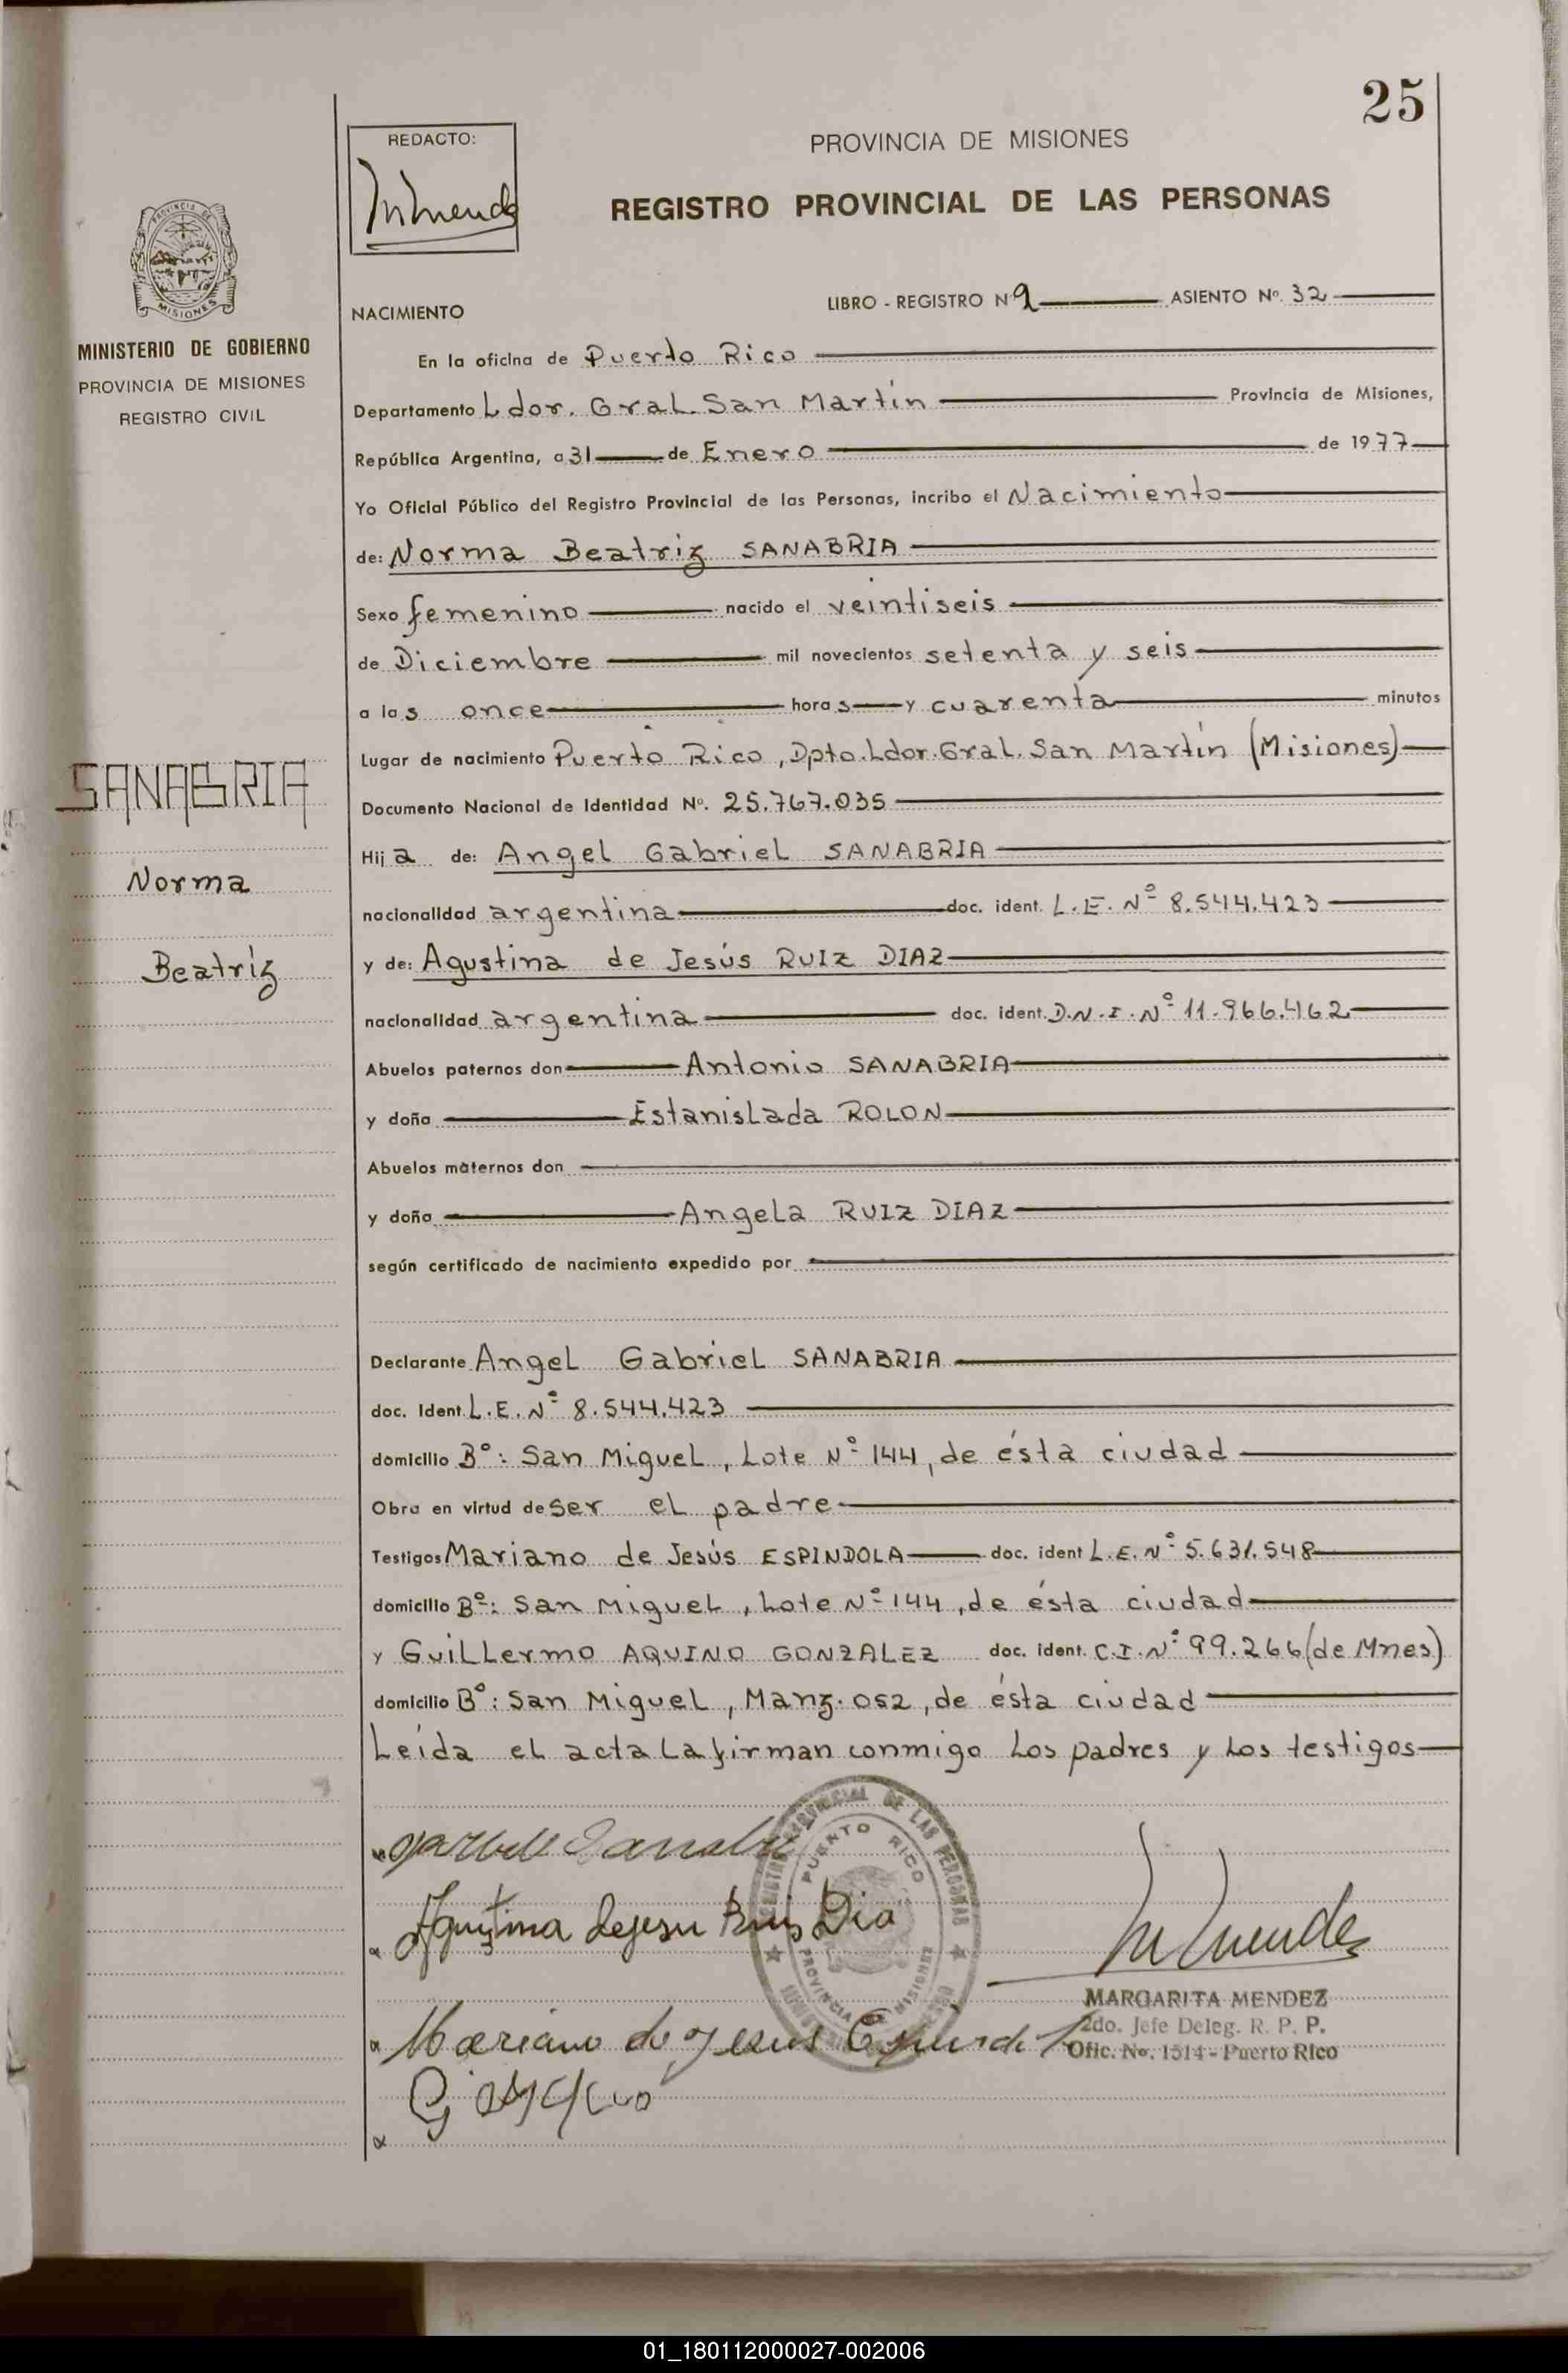 25
REDACTO:
PROVINCIA DE MISIONES
REGISTRO PROVINCIAL DE LAS PERSONAS
PROVINCIA DE
MISIONES
MINISTERIO DE GOBIERNO
PROVINCIA DE MISIONES
REGISTRO CIVIL
NACIMIENTO
LIBRO - REGISTRO Nº 2 ASIENTO Nº. 32
En la oficina de Puerto Rico
Departamento Ldor. Gral. San Martín Provincia de Misiones,
República Argentina, a 31 de Enero de 1977
Yo Oficial Público del Registro Provincial de las Personas, incribo el Nacimiento
de: Norma Beatriz SANABRIA
Sexo femenino nacido el veintiseis
de Diciembre mil novecientos setenta y seis
a las once horas y cuarenta minutos
Lugar de nacimiento Puerto Rico, Dpto. Ldor. Gral. San Martín (Misiones)
SANABRIA
Documento Nacional de Identidad Nº. 25.767.035
Hija de: Angel Gabriel SANABRIA
Norma
nacionalidad argentina doc. ident. L.E. Nº 8.544.423
Beatríz
y de: Agustina de Jesús RUIZ DIAZ
nacionalidad argentina doc. ident. D.N.I. Nº 11.966.462
Abuelos paternos don Antonio SANABRIA
y doña Estanislada ROLON
Abuelos maternos don
y doña Angela RUIZ DIAZ
según certificado de nacimiento expedido por
Declarante Angel Gabriel SANABRIA
doc. Ident. L.E. Nº 8.544.423
domicilio Bº: San Miguel, Lote Nº 144, de ésta ciudad
Obra en virtud de ser el padre
Testigos Mariano de Jesús ESPINDOLA doc. ident L.E. Nº 5.631.548
domicilio Bº: San Miguel, Lote Nº 144, de ésta ciudad
y Guillermo AQUINO GONZALEZ doc. ident. C.I. Nº 99.266 (de Mnes)
domicilio Bº: San Miguel, Manz. 052, de ésta ciudad
Leída el acta la firman conmigo los padres y los testigos
PROVINCIAL DE LAS PERSONAS
PUERTO RICO
PROVINCIA DE MISIONES
Agustina dejesu Ruis Dia
MARGARITA MENDEZ
2do. Jefe Deleg. R. P. P.
Mariano de Jesus Espindola
Ofic. No. 1514 - Puerto Rico
01_180112000027-002006